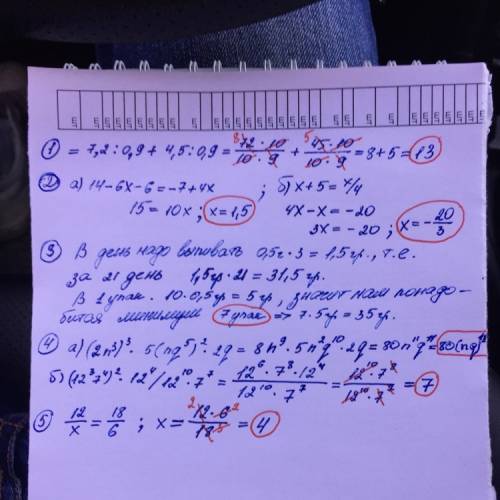 ① = 7,2 : 0,9 + 4,5 : 0,9 = 72·10/10·9 + 45·10/10·9 = 8+5 = 13
② а) 14-6x-6=-7+4x ; б) x+5 = x/4
15 = 10x ; x=1,5 4x-x = -20
3x = -20 ; x = -20/3
③ В день надо выпивать 0,5г·3 = 1,5гр., т.е.
за 21 день 1,5гр·21 = 31,5гр.
В 1 упак. 10·0,5гр = 5гр, значит нам понадо-
бится минимум 7 упак => 7·5гр = 35гр.
④ а) (2n³)³ · 5(nq⁵)² · 2q = 8n⁹ · 5n²q¹⁰ · 2q = 80n¹¹q¹¹ = 80(nq)¹¹
б) (12³7⁴)² · 12⁴/12¹⁰·7⁷ = 12⁶·7⁸·12⁴/12¹⁰·7⁷ = 12¹⁰·7⁸/12¹⁰·7⁷ = 7
⑤ 12/x = 18/6 ; x = 12·6/18 = 4